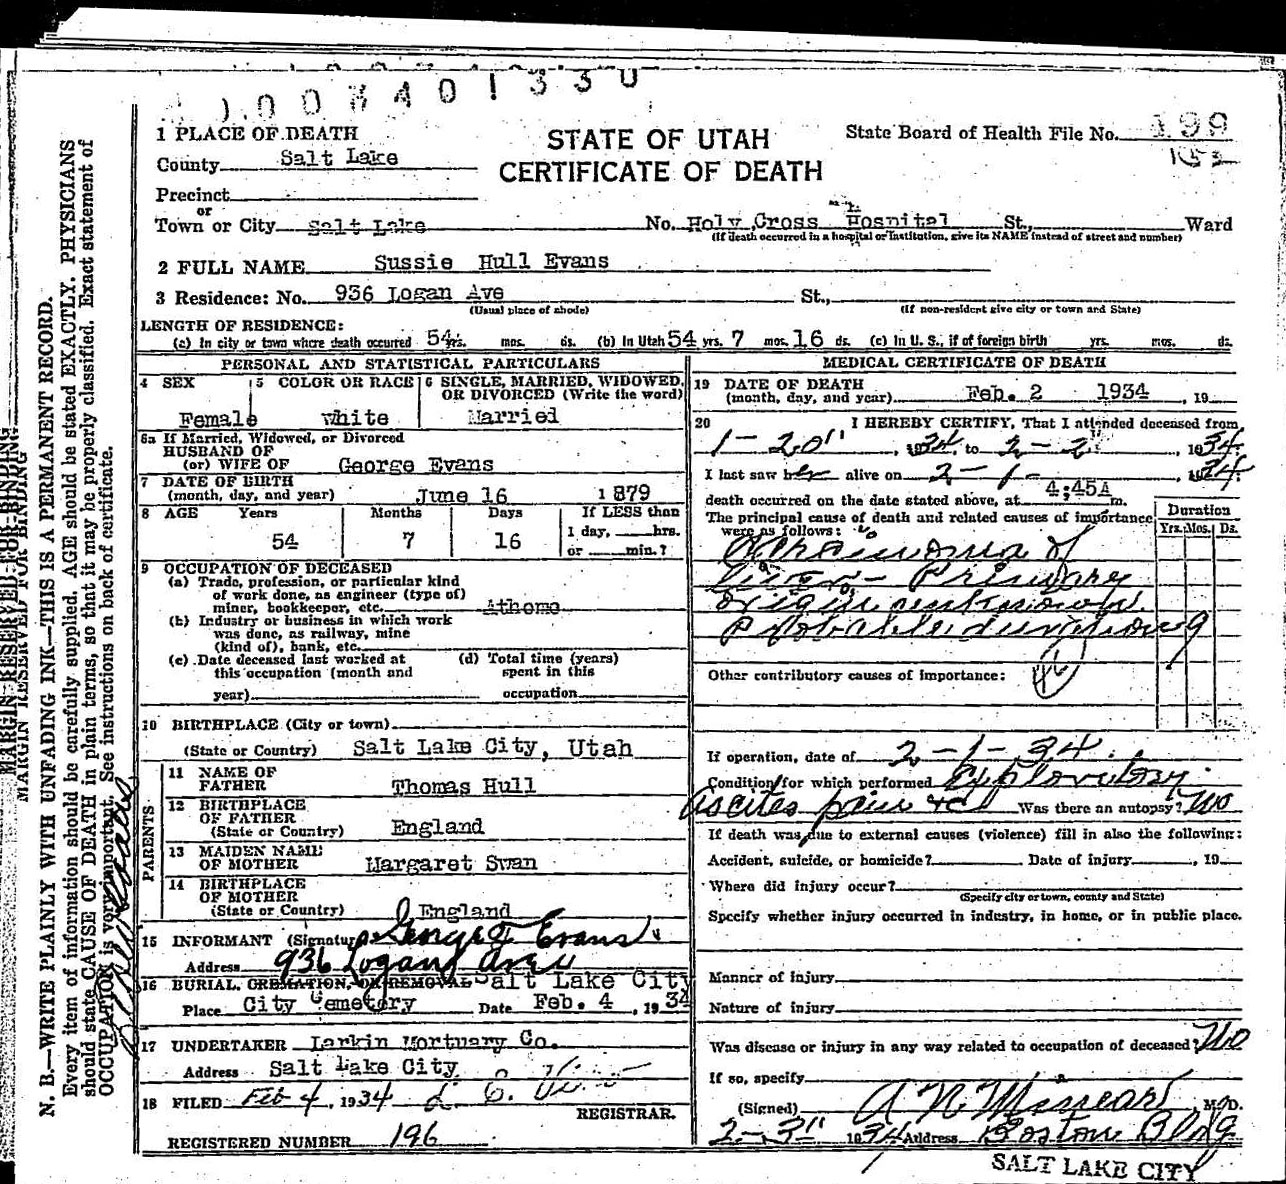 1 PLACE OF DEATH
STATE OF UTAH
CERTIFICATE OF DEATH
State Board of Health File No. 199
153
County Salt Lake
Precinct
or
Town or City Salt Lake No. Holy Cross Hospital St., Ward
(If death occurred in a hospital or institution, give its NAME instead of street and number)
2 FULL NAME Sussie Hull Evans
3 Residence: No. 936 Logan Ave St.,
(Usual place of abode) (If non-resident give city or town and State)
LENGTH OF RESIDENCE:
(a) In city or town where death occurred 54 yrs. mos. ds. (b) In Utah 54 yrs. 7 mos. 16 ds. (c) In U. S., if of foreign birth yrs. mos. ds.
PERSONAL AND STATISTICAL PARTICULARS
4 SEX 5 COLOR OR RACE 6 SINGLE, MARRIED, WIDOWED,
OR DIVORCED (Write the word)
Female White Married
6a If Married, Widowed, or Divorced
HUSBAND OF
(or) WIFE OF George Evans
7 DATE OF BIRTH
(month, day, and year) June 16 1879
8 AGE Years Months Days If LESS than
1 day, hrs.
54 7 16 or min.?
9 OCCUPATION OF DECEASED
(a) Trade, profession, or particular kind
of work done, as engineer (type of)
miner, bookkeeper, etc. Athome
(b) Industry or business in which work
was done, as railway, mine
(kind of), bank, etc.
(c) Date deceased last worked at (d) Total time (years)
this occupation (month and spent in this
year) occupation
10 BIRTHPLACE (City or town)
(State or Country) Salt Lake City, Utah
PARENTS
11 NAME OF
FATHER Thomas Hull
12 BIRTHPLACE
OF FATHER
(State or Country) England
13 MAIDEN NAME
OF MOTHER Margaret Swan
14 BIRTHPLACE
OF MOTHER
(State or Country) England
15 INFORMANT (Signature) George F Evans
Address 936 Logan Ave
16 BURIAL, CREMATION, OR REMOVAL Salt Lake City
Place City Cemetery Date Feb. 4, 1934
17 UNDERTAKER Larkin Mortuary Co.
Address Salt Lake City
18 FILED Feb 4, 1934
REGISTRAR.
REGISTERED NUMBER 196
MEDICAL CERTIFICATE OF DEATH
19 DATE OF DEATH
(month, day, and year) Feb. 2 1934, 19
20 I HEREBY CERTIFY, That I attended deceased from
1-20", 1934 to 2-2", 1934.
I last saw her alive on 2-1-, 1934.
death occurred on the date stated above, at 4;45A m.
The principal cause of death and related causes of importance
were as follows:
Duration
Yrs. Mos. Ds.
Carcinoma of
Liver - Primary
origin unknown
Probable duration 9
Other contributory causes of importance:
If operation, date of 2-1-34.
Condition for which performed Exploratory
ascites pain etc Was there an autopsy? No
If death was due to external causes (violence) fill in also the following:
Accident, suicide, or homicide? Date of injury, 19
Where did injury occur?
(Specify city or town, county and State)
Specify whether injury occurred in industry, in home, or in public place.
Manner of injury
Nature of injury
Was disease or injury in any way related to occupation of deceased? No
If so, specify
(Signed) A N Minear M.D.
2-3" 1934 Address Boston Bldg
SALT LAKE CITY
MARGIN RESERVED FOR BINDING
MARGIN RESERVED FOR BINDING
N. B.—WRITE PLAINLY WITH UNFADING INK—THIS IS A PERMANENT RECORD.
Every item of information should be carefully supplied. AGE should be stated EXACTLY. PHYSICIANS
should state CAUSE OF DEATH in plain terms, so that it may be properly classified. Exact statement of
OCCUPATION is very important. See instructions on back of certificate.